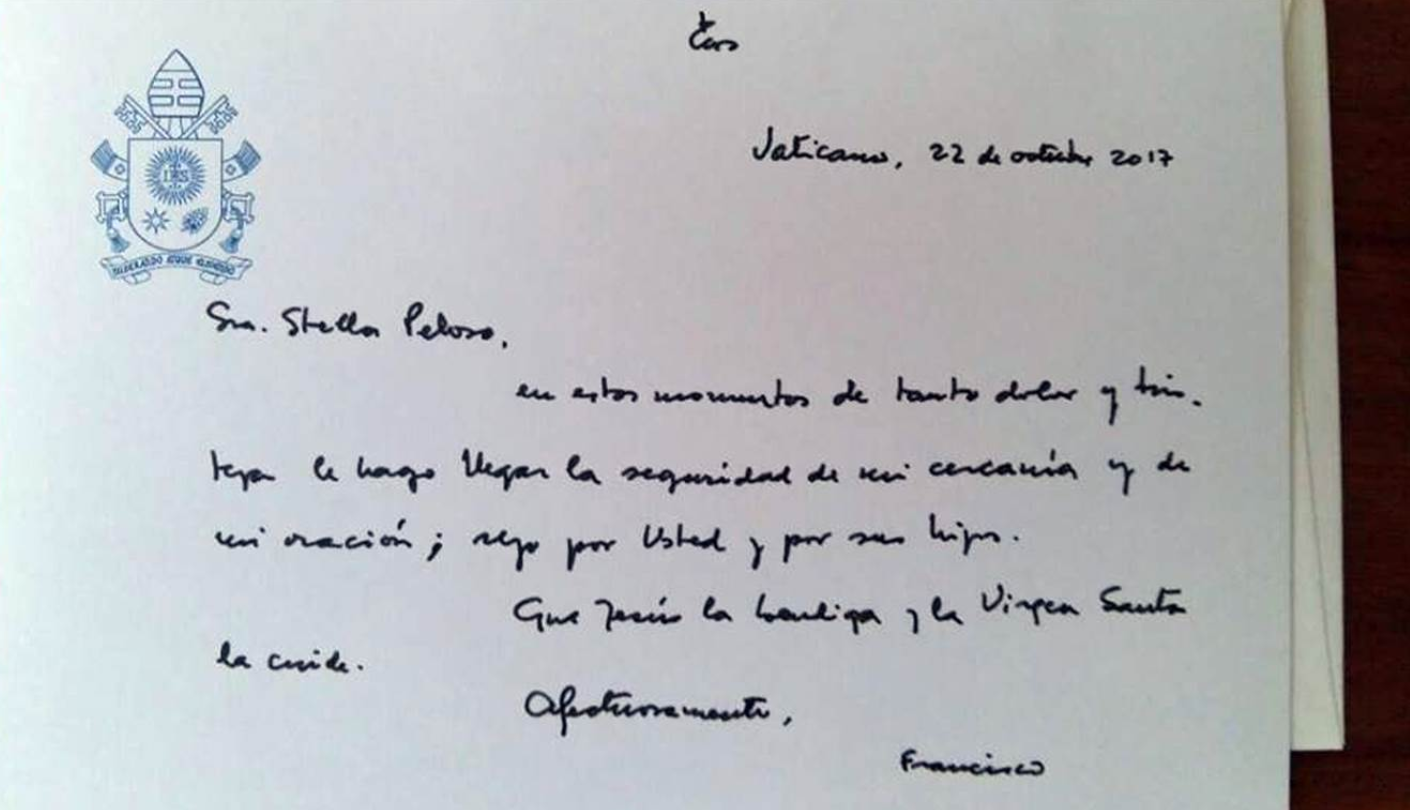 IHS
MISERANDO ATQUE ELIGENDO
Vaticano, 22 de octubre 2017
Sra. Stella Peloso,
en estos momentos de tanto dolor y tris-
teza le hago llegar la seguridad de mi cercanía y de
mi oración; rezo por Usted y por sus hijos.
Que Jesús la bendiga y la Virgen Santa
la cuide.
Afectuosamente,
Francisco